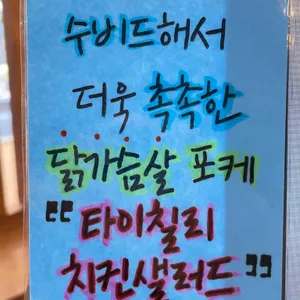 수비드해서
더욱 촉촉한
닭가슴살 포케
"타이칠리
치킨샐러드"